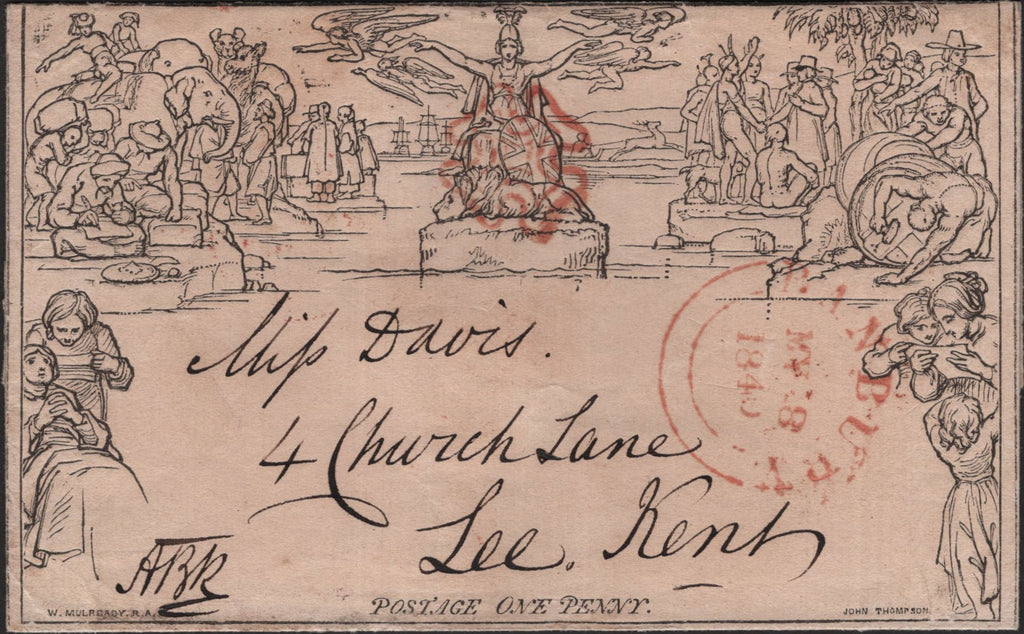 Miss Davis.
4 Church Lane
Lee. Kent
MY 8
1840
POSTAGE ONE PENNY.
W. MULREADY. R.A.
JOHN THOMPSON